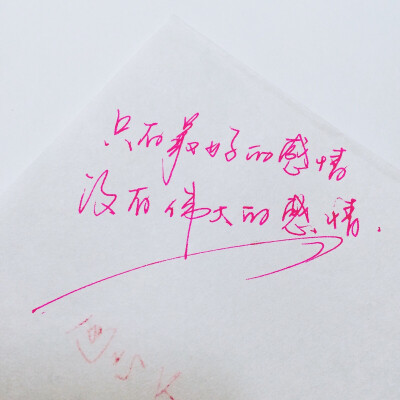 只有最好的感情
没有伟大的感情.